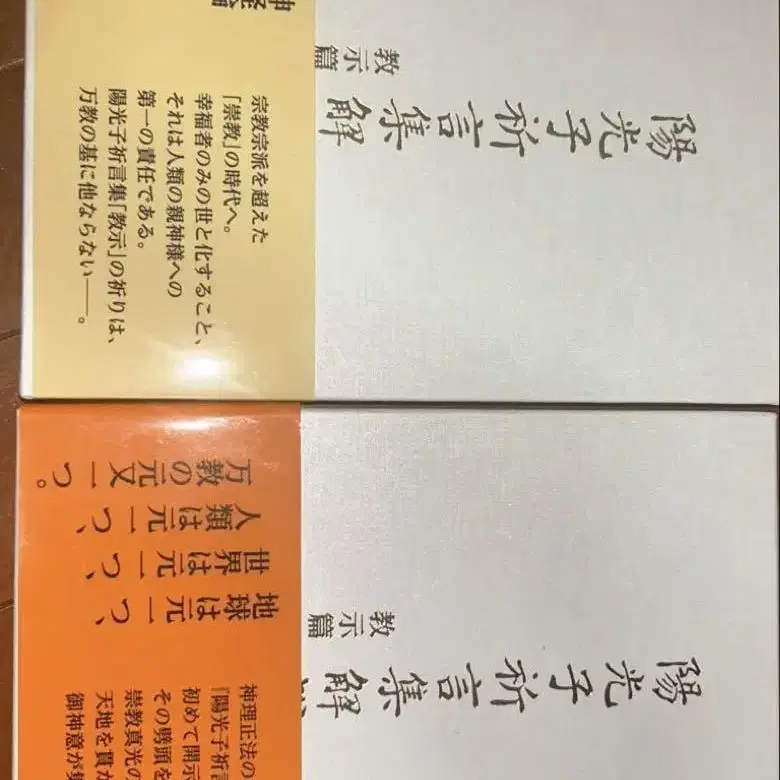 陽光子祈言集解
教示篇
宗教宗派を超えた
「崇教」の時代へ。
幸福者のみの世と化すること、
それは人類の親神様への
第一の責任である。
陽光子祈言集「教示」の祈りは、
万教の基に他ならない──。
陽光子祈言集解
教示篇
地球は元一つ、
世界は元一つ、
人類は元一つ、
万教の元又一つ。
神理正法の
「陽光子祈言
初めて開示
その劈頭を
崇教真光の
天地を貫
御神意が